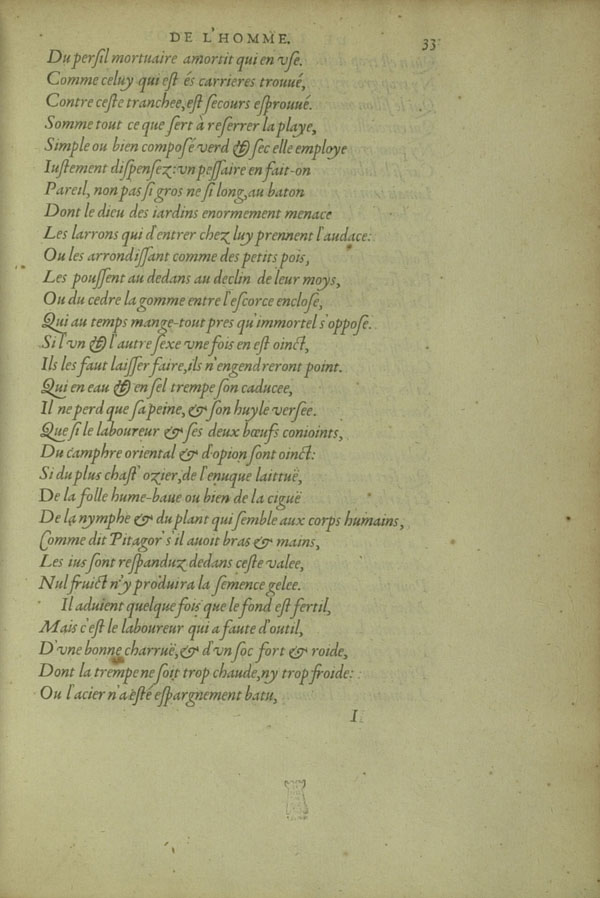 DE L'HOMME. 33
Du persil mortuaire amortit qui en vse.
Comme celuy qui est és carrieres trouué,
Contre ceste tranchee, est secours esprouué.
Somme tout ce que sert à reserrer la playe,
Simple ou bien composé verd & sec elle employe
Iustement dispensez: vn pessaire en fait-on
Pareil, non pas si gros ne si long, au baton
Dont le dieu des iardins enormement menace
Les larrons qui d'entrer chez luy prennent l'audace:
Ou les arrondissant comme des petits pois,
Les poussent au dedans au declin de leur moys,
Ou du cedre la gomme entre l'escorce enclose,
Qui au temps mange-tout pres qu'immortel s'oppose.
Si l'vn & l'autre sexe vne fois en est oinct,
Ils les faut laisser faire, ils n'engendreront point.
Qui en eau & en sel trempe son caducee,
Il ne perd que sa peine, & son huyle versee.
Que si le laboureur & ses deux bœufs conioints,
Du camphre oriental & d'opion sont oinct:
Si du plus chast' ozier, de l'enuque laittuë,
De la folle hume-baue ou bien de la ciguë
De la nymphe & du plant qui semble aux corps humains,
Comme dit Pitagor's il auoit bras & mains,
Les ius sont respanduz dedans ceste valee,
Nul fruict n'y produira la semence gelee.
Il aduient quelque fois que le fond est fertil,
Mais c'est le laboureur qui a faute d'outil,
D'vne bonne charruë, & d'vn soc fort & roide,
Dont la trempe ne soit trop chaude, ny trop froide:
Ou l'acier n'a esté espargnement batu,
I